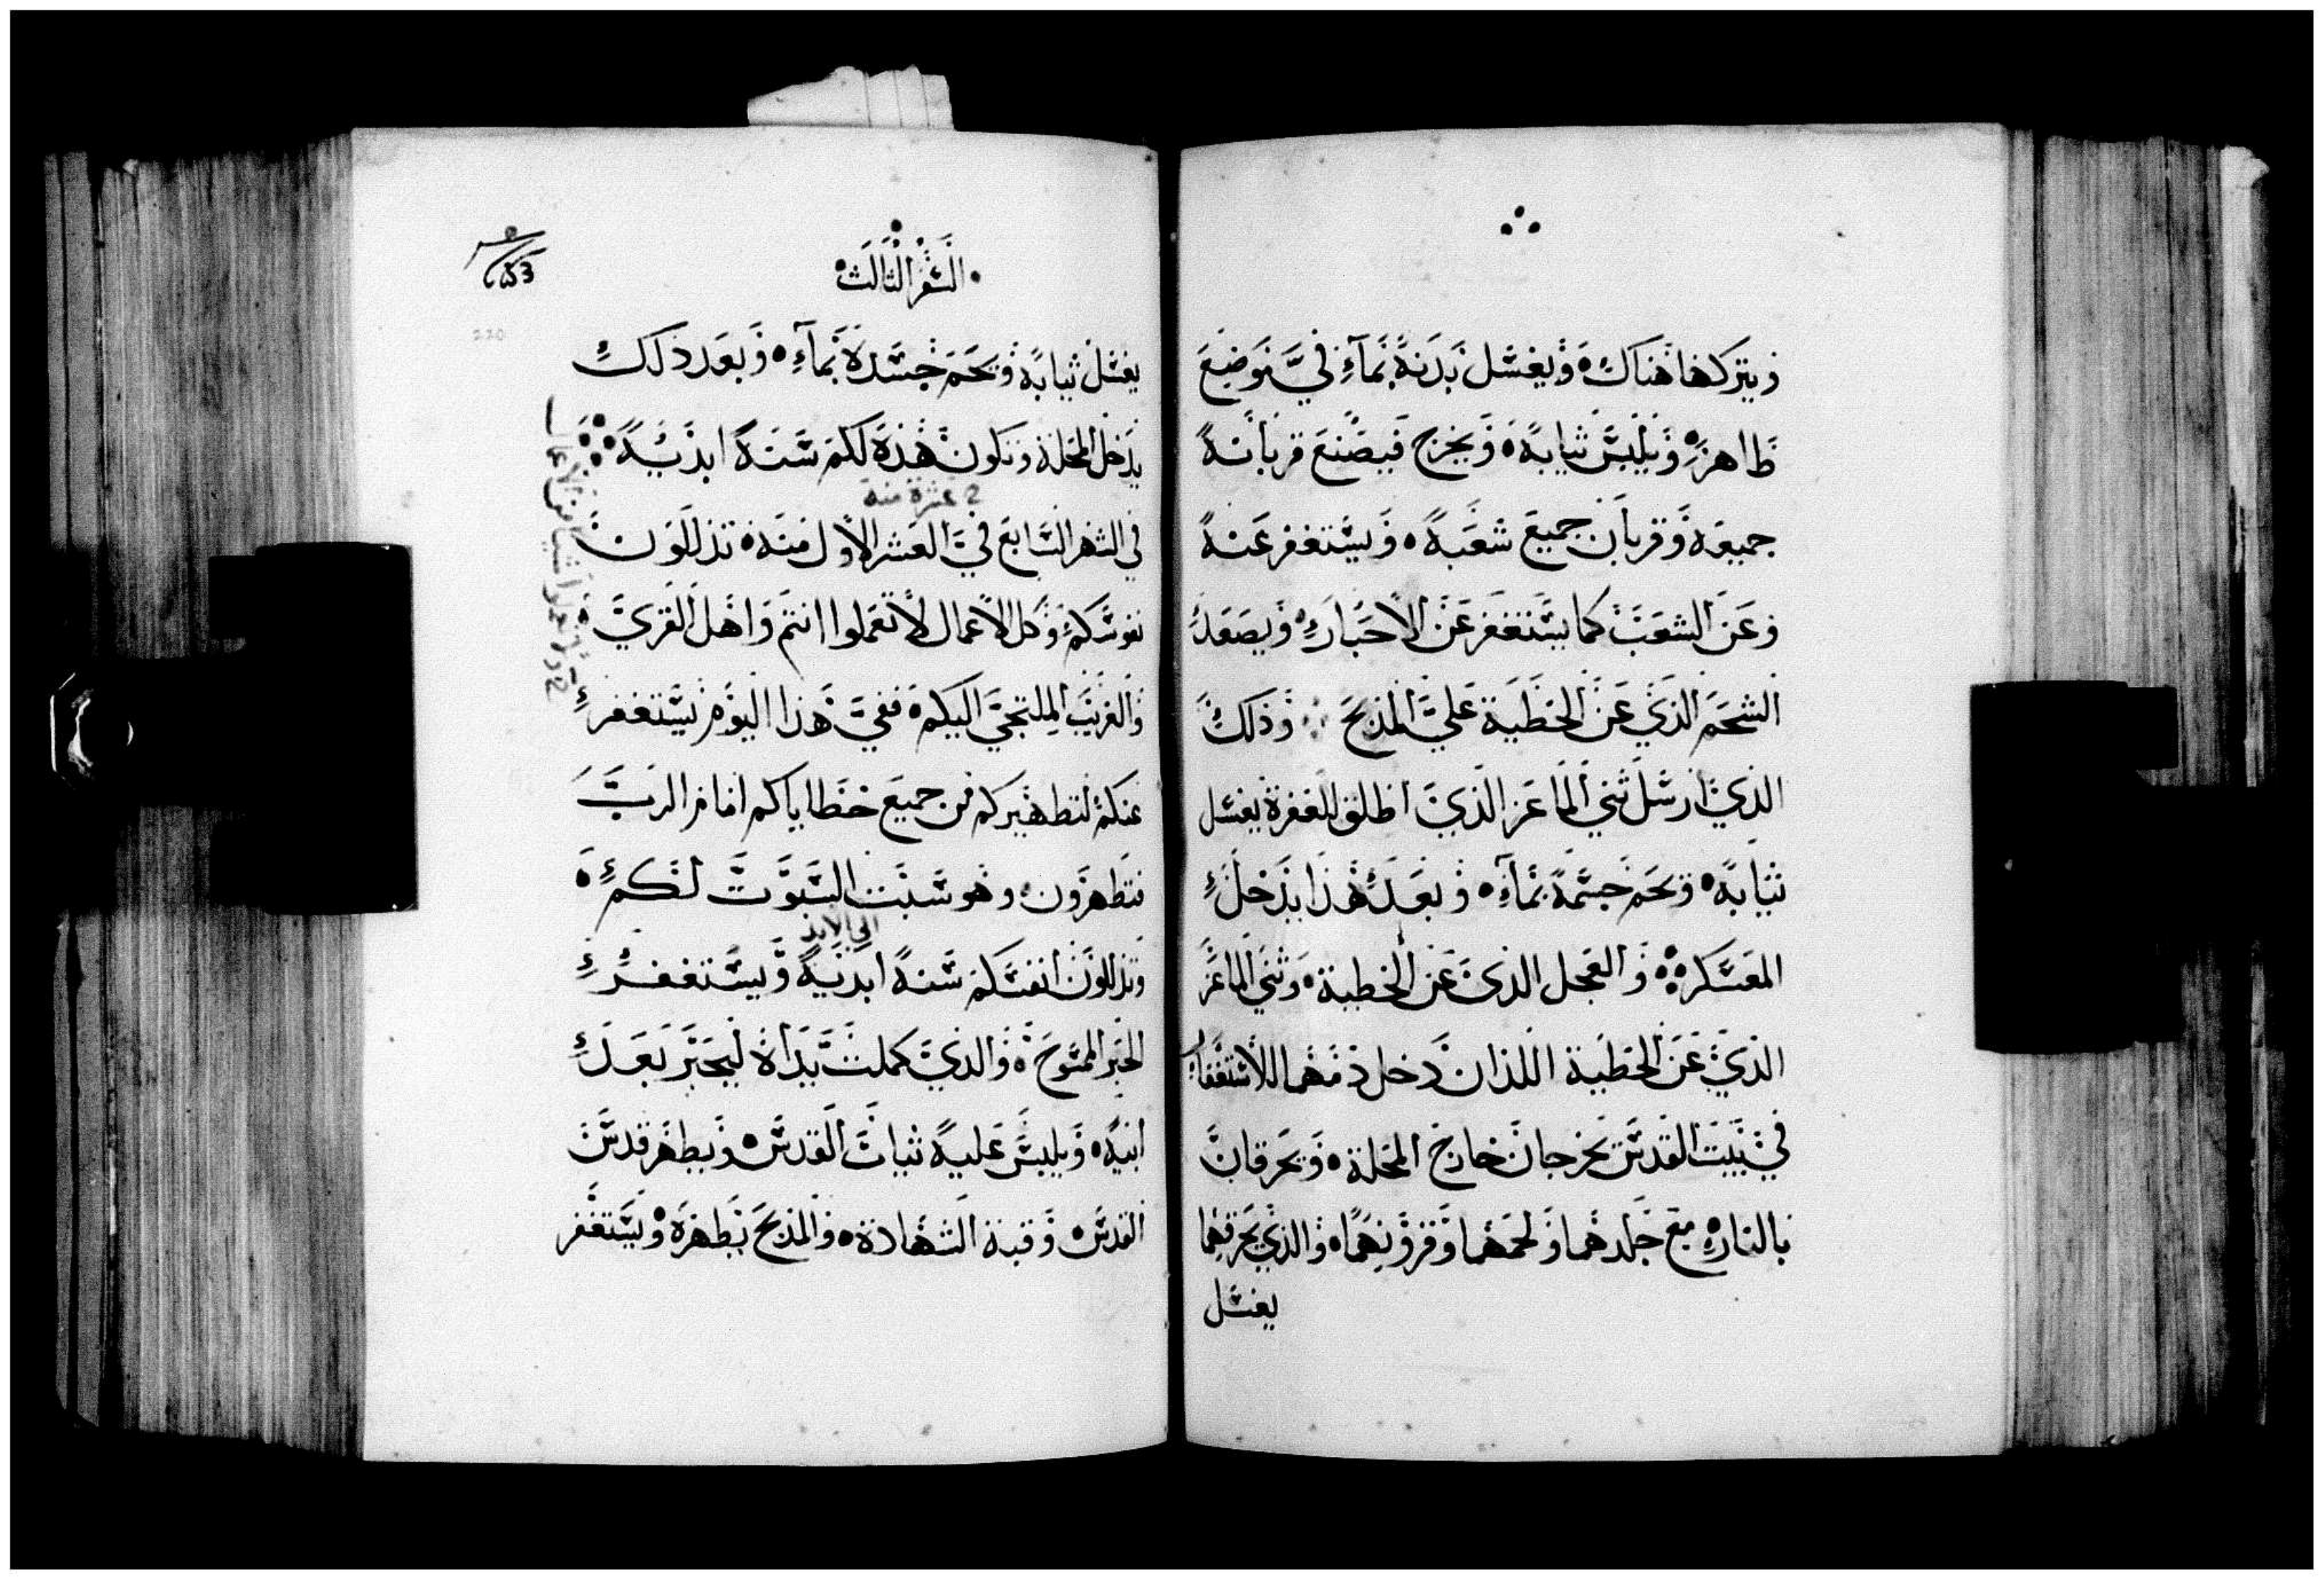 ويتركها هناك ويغسل بدنه بماء في موضع
طاهر ويلبس ثيابه ويخرج فيصنع قربانه
جميعه وقربان جميع شعبه ويستغفر عنه
وعن الشعب كما يستغفر عن الاحبار ويصعد
الشحم الذي عن الخطية علي المذبح وذلك
الذي ارسل ثني الماعز الذي اطلق للغفرة يغسل
ثيابه ويحم جسمه بماء وبعد هذا يدخل
المعسكر والعجل الذي عن الخطية وثني الماعز
الذي عن الخطية اللذان دخل دمهما للاستغفار
في بيت القدس يخرجان خارج المحلة ويحرقان
بالنار مع جلدهما ولحمهما وفرونهما والذي يحرقهما
يغسل
السفر الثالث
يغسل ثيابه ويحم جسده بماء وبعد ذلك
يدخل المحلة وتكون هذه لكم سنة ابدية
عشرة منه
في الشهر السابع في العشر الاول منه تذللون
نفوسكم وكل الاعمال لا تعملوا انتم واهل القري
والغريب الملتجي اليكم ففي هذا اليوم يستغفر
عنكم لتطهيركم من جميع خطاياكم امام الرب
فتطهرون وهو سبت السبوت لكم
الي الابد
وتذللون انفسكم سنة ابدية ويستغفر
الحبر الممسوح والذي كملت يداه ليحبر بعد
ابيه ويلبس عليه ثياب القدس ويطهر قدس
القدس وقبة الشهادة والمذبح يطهره ويستغفر